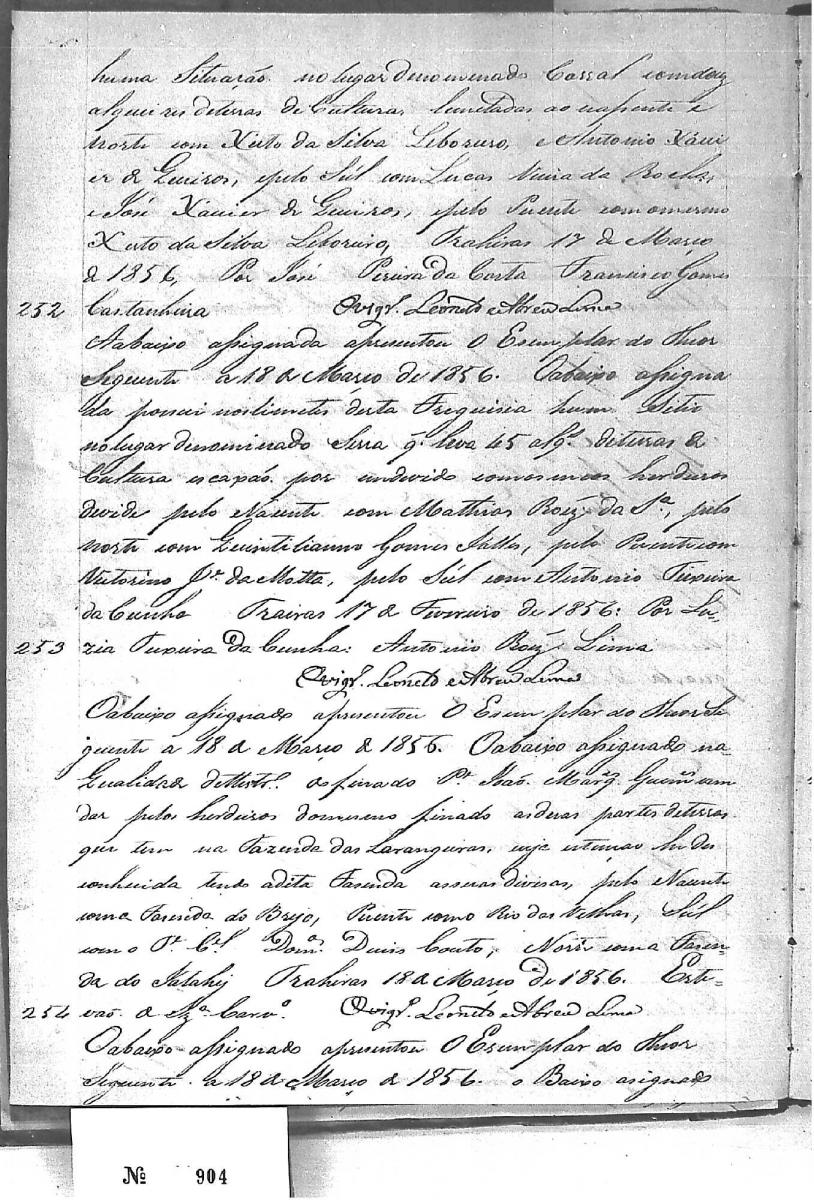 huma Situacão no lugar denomenado Corral com dez
alqueires de terras de Cultura, limitadas ao nascente e
Norte com Xisto da Silva Leboreiro, e Antonio Xavi
er de Queiros, e pelo Súl com Lucas Vieira da Rocha,
e José Xavier de Queiros, e pelo Puente com o mesmo
Xisto da Silva Leboreiro, Trahiras 17 de Março
de 1856, Por José Pereira da Costa Francisco Gomes
252 Castanheira O vigr.º Leoneto e Abreu Lima
A abaixo assignada apresentou O Exemplar do theor
Seguente a 18 de Março de 1856. O abaixo assigna
da possui nos limites desta Freguisia hum Sitio
no lugar denominado Serra q. leva 45 alqs. de terras de
Cultura es capão por indevido com os meos herdeiros
devide pelo Nacente com Mathias Roiz da Sª, pelo
norte com Quintilianno Gomes, pelo Puente com
Victorino Jê. da Motta, pelo Súl com Antonio Teixeira
da Cunha Trairas 17 de Fevereiro de 1856: Por Lu-
253 zia Teixeira da Cunha: Antonio Roiz Lima
O vigr.º Leoneto e Abreu Lima
O abaixo assignado apresentou O Exemplar do theor Se
guente a 18 de Março de 1856. O abaixo assignado na
Qualidade de Testr. do finado Pe. João Marq. Guimes. vem
dar pelos herdeiros do mesmo finado as deras partes de terras
que tem na Fazenda das Larangeiras, cuje estencao he des
conhecida tendo a dita Fazenda as suas divisas, pelo Nacente
com a Fazenda do Brejo, Puente com o Rio das Velhas, Súl
com o Te. Cel. Domos. Diniz Couto, Norte com a Fasen-
da do Jatahy Trahiras 18 de Março de 1856. Este-
254 vao de Sza. Carvo. O vigr.º Leoneto e Abreu Lima
O abaixo assignado apresentou O Exemplar do theor
Seguente a 18 de Março de 1856. o Baixo asignado
Nº 904